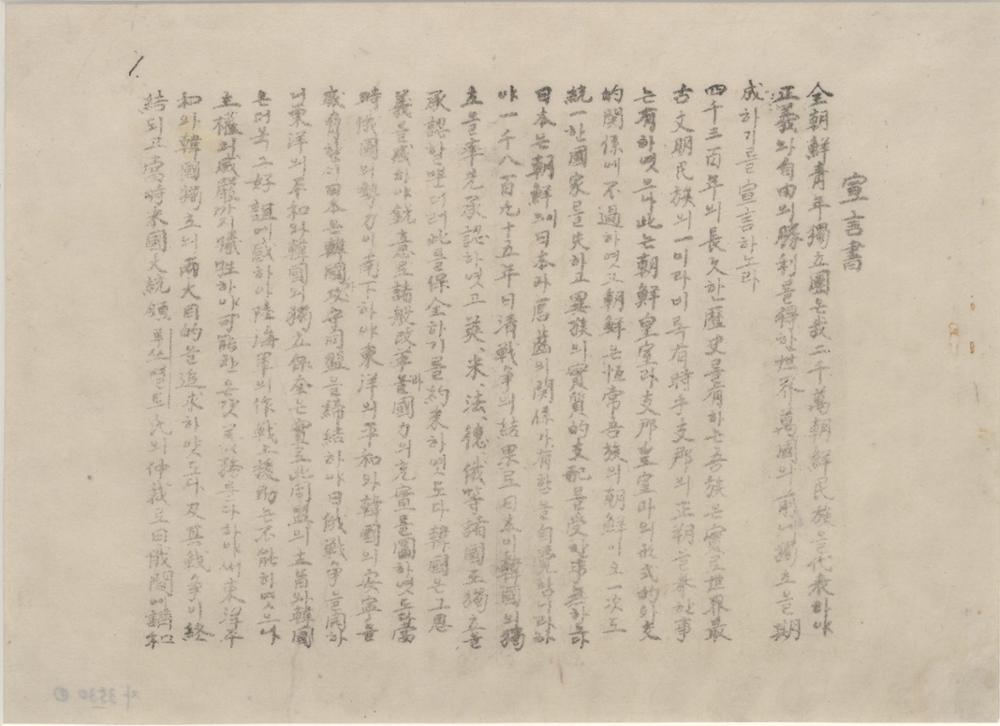 1.
宣言書
全朝鮮青年獨立團은我二千萬朝鮮民族을代表하야
正義와自由의勝利를得한世界萬國의前에獨立을期
成하기를宣言하노라
四千三百年의長久한歷史를有하는吾族은實로世界最
古文明民族의一이라비록有時乎支那의正朔을奉한事
는有하엿으나此는朝鮮皇室과支那皇室과의形式的外交
的關係에不過하엿고朝鮮은恒常吾族의朝鮮이오一次도
統一한國家를失하고異族의實質的支配를受한事無하도다
日本은朝鮮이日本과唇齒의關係가有함을自覺함이라하
야一千八百九十五年日淸戰爭의結果로日本이韓國의獨
立을率先承認하엿고英、米、法、德、俄等諸國도獨立을
承認할뿐더러此를保全하기를約束하엿도다韓國은그恩
義를感하야銳意로諸般改革과國力의充實을圖하엿도다當
時俄國의勢力이南下하야東洋의平和와韓國의安寧을
威脅할새日本은韓國과攻守同盟을締結하야日俄戰爭을開하
니東洋의平和와韓國의獨立保全은實로此同盟의主旨와韓國
은더욱그好誼에感하야陸海軍의作戰上援助는不能하엿으나
主權의威嚴까지犧牲하야可能한온갖義務를다하야써東洋平
和와韓國獨立의兩大目的을追求하얏도다及其戰爭이終
結되고當時米國大統領루쓰벨트氏의仲裁로日俄間에講和
자 3530 ①